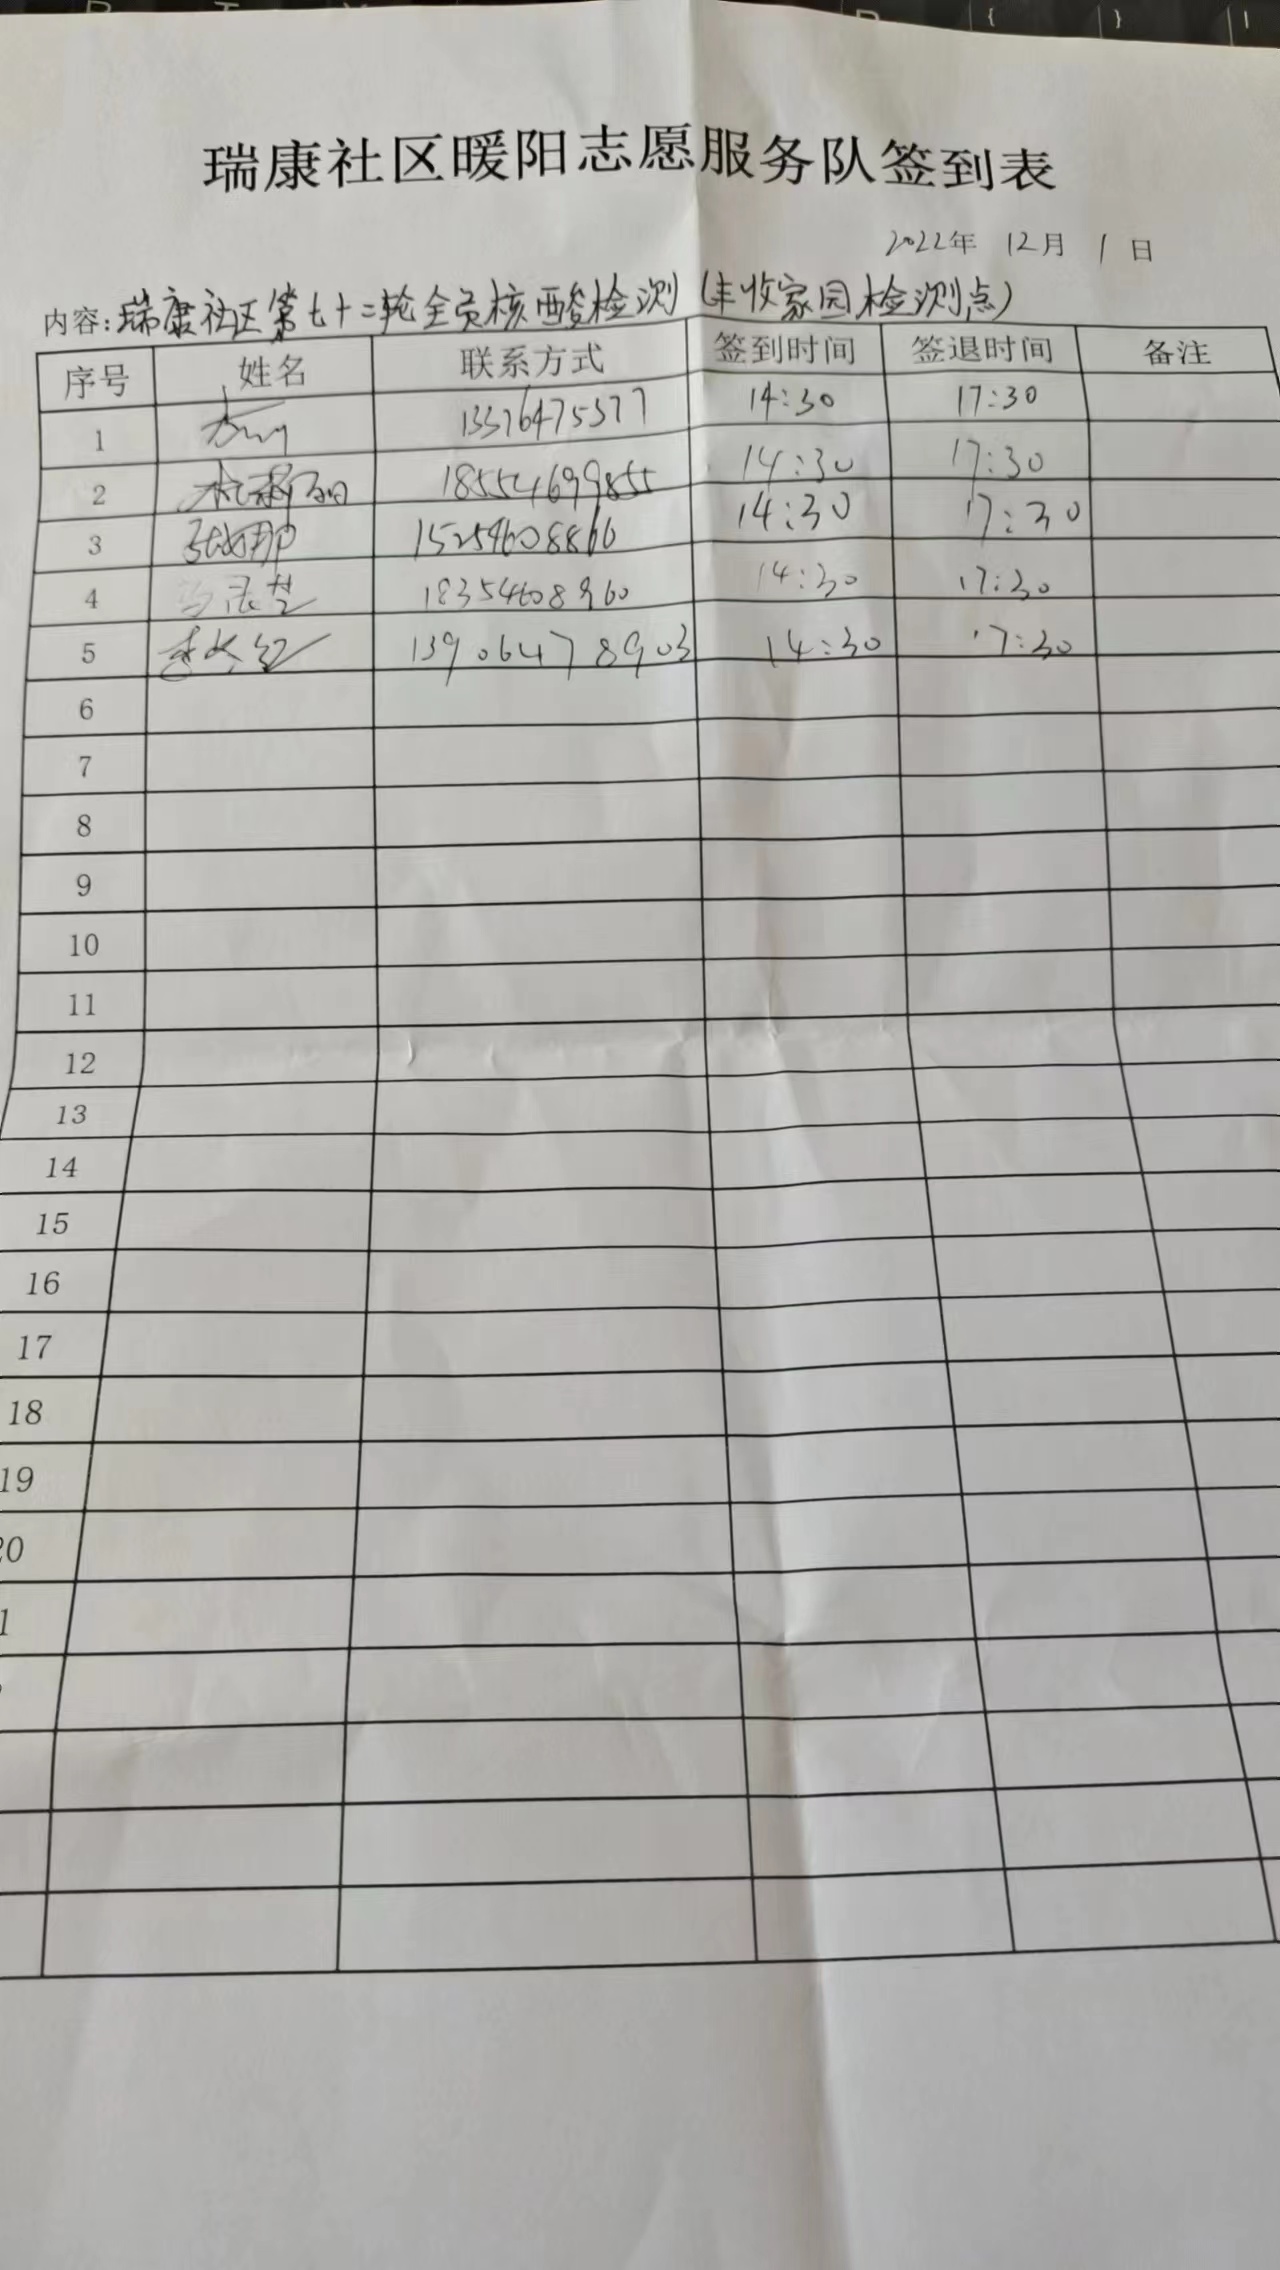 瑞康社区暖阳志愿服务队签到表
2022年 12月 1日
内容:瑞康社区第七十二轮全员核酸检测(丰收家园检测点)
序号 姓名 联系方式 签到时间 签退时间 备注
1 14:30 17:30
2 18554699855 14:30 17:30
3 张娜 14:30 17:30
4 18354608960 14:30 17:30
5 13906478903 14:30 17:30
6
7
8
9
10
11
12
13
14
15
16
17
18
19
20
1